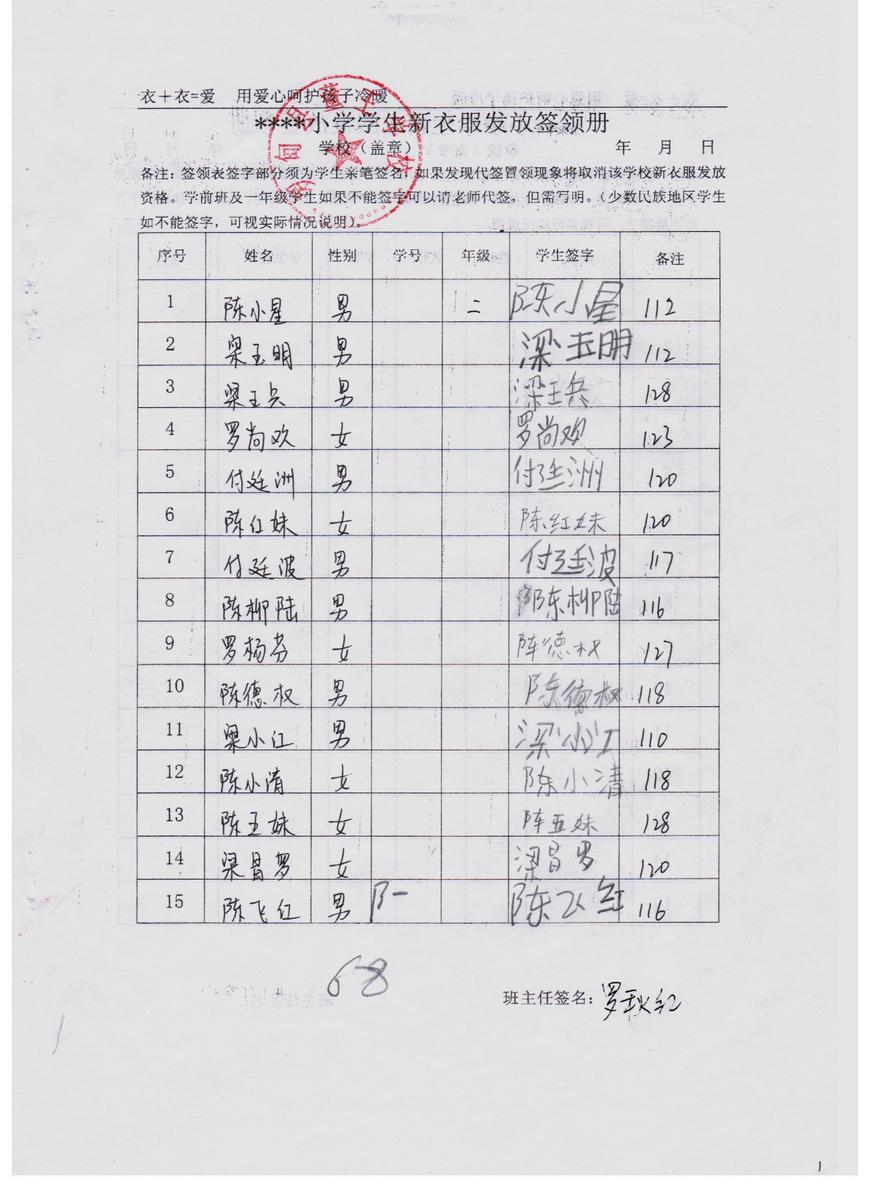 衣＋衣=爱 用爱心呵护孩子冷暖
****小学学生新衣服发放签领册
学校（盖章） 年 月 日
备注：签领表签字部分须为学生亲笔签名，如果发现代签冒领现象将取消该学校新衣服发放
资格。学前班及一年级学生如果不能签字可以请老师代签，但需写明。（少数民族地区学生
如不能签字，可视实际情况说明）。
序号 姓名 性别 学号 年级 学生签字 备注
1 陈小星 男 二 陈小星 112
2 梁玉明 男 梁玉明 112
3 梁王兵 男 梁王兵 128
4 罗尚欢 女 罗尚欢 123
5 付廷洲 男 付廷洲 120
6 陈红妹 女 陈红妹 120
7 付廷波 男 付廷波 117
8 陈柳陆 男 陈柳陆 116
9 罗杨芬 女 陈德权 127
10 陈德权 男 陈德权 118
11 梁小江 男 梁小江 110
12 陈小清 女 陈小清 118
13 陈五妹 女 陈五妹 128
14 梁昌罗 女 梁昌罗 120
15 陈飞红 男 陈飞红 116
68
班主任签名：罗秋红